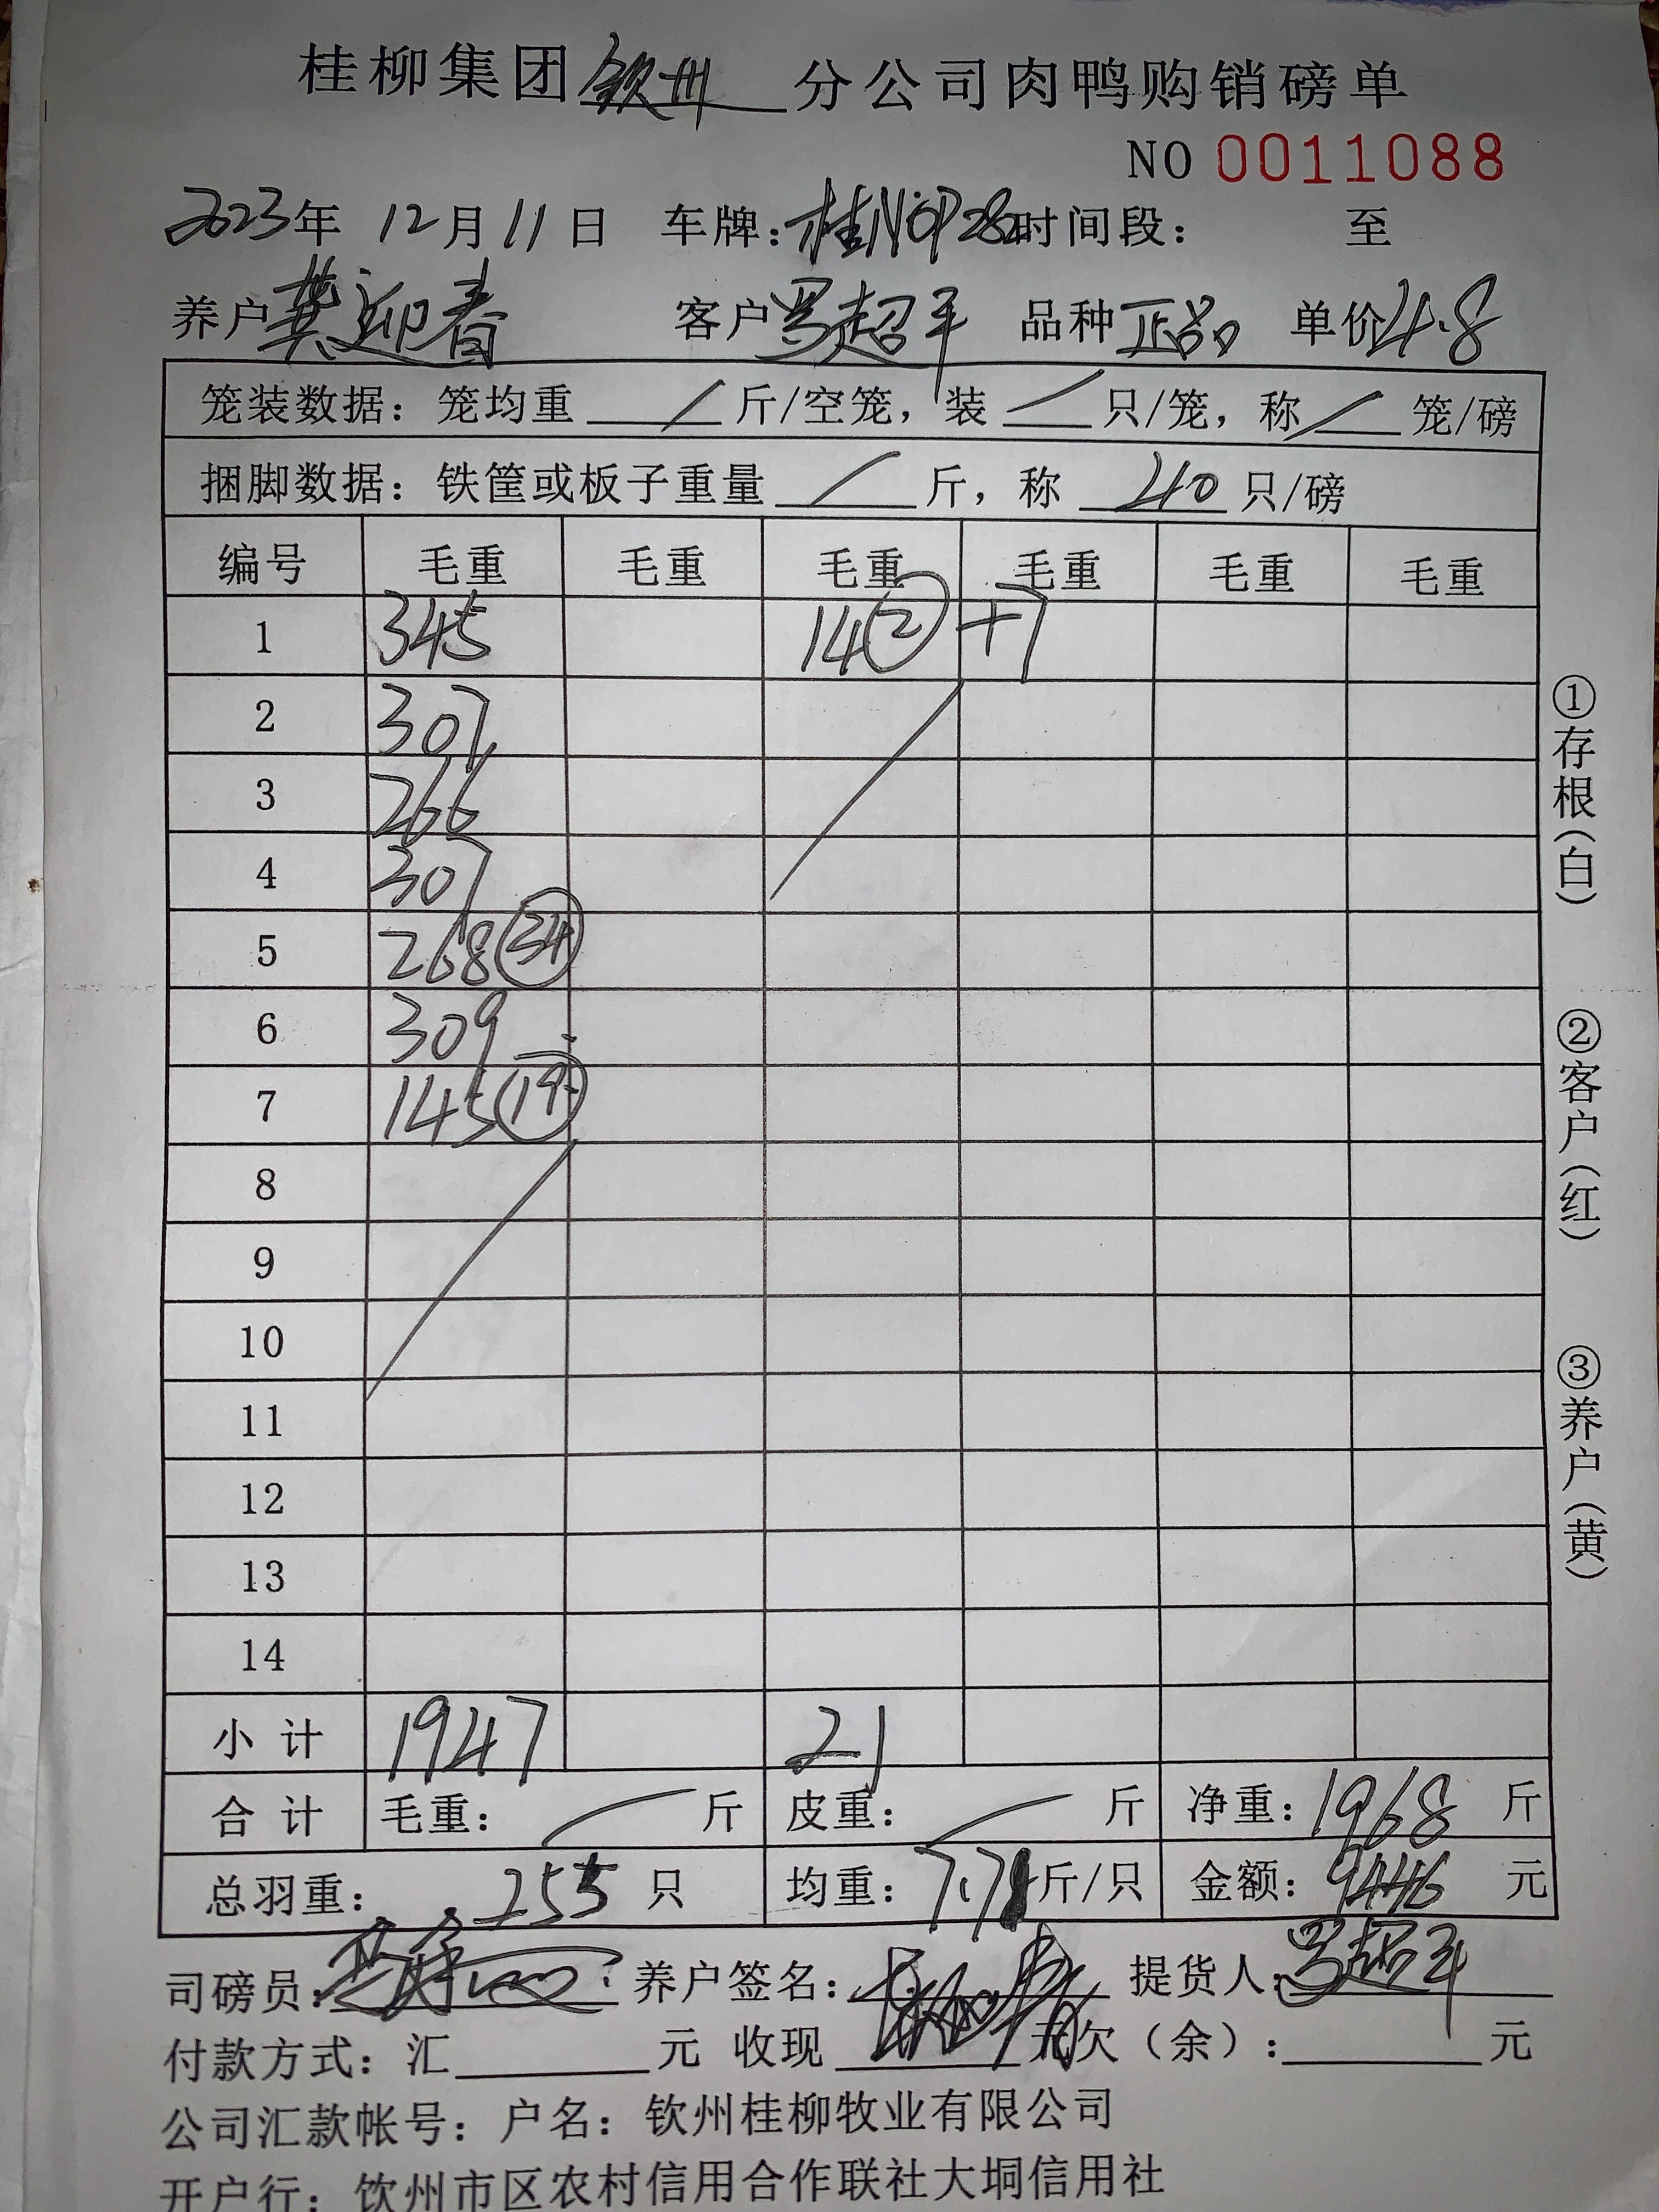 桂柳集团钦州分公司肉鸭购销磅单
NO 0011088
2023年 12月11日 车牌:桂N0P28 时间段: 至
养户龚迎春 客户罗超平 品种正品 单价4.8
笼装数据:笼均重 / 斤/空笼,装 / 只/笼,称 / 笼/磅
捆脚数据:铁筐或板子重量 / 斤,称 40 只/磅
编号 毛重 毛重 毛重 毛重 毛重 毛重
1 345 14② +7
2 307
3 266
4 307
5 268 (34)
6 309
7 145 (19)
8
9
10
11
12
13
14
小计 1947 21
合计 毛重: / 斤 皮重: / 斤 净重:1968 斤
总羽重:253 只 均重:7.78斤/只 金额:9446 元
司磅员: 养户签名: 提货人:罗超平
付款方式:汇 元 收现 元欠(余): 元
公司汇款帐号:户名:钦州桂柳牧业有限公司
开户行:钦州市区农村信用合作联社大垌信用社
①存根(白)
②客户(红)
③养户(黄)